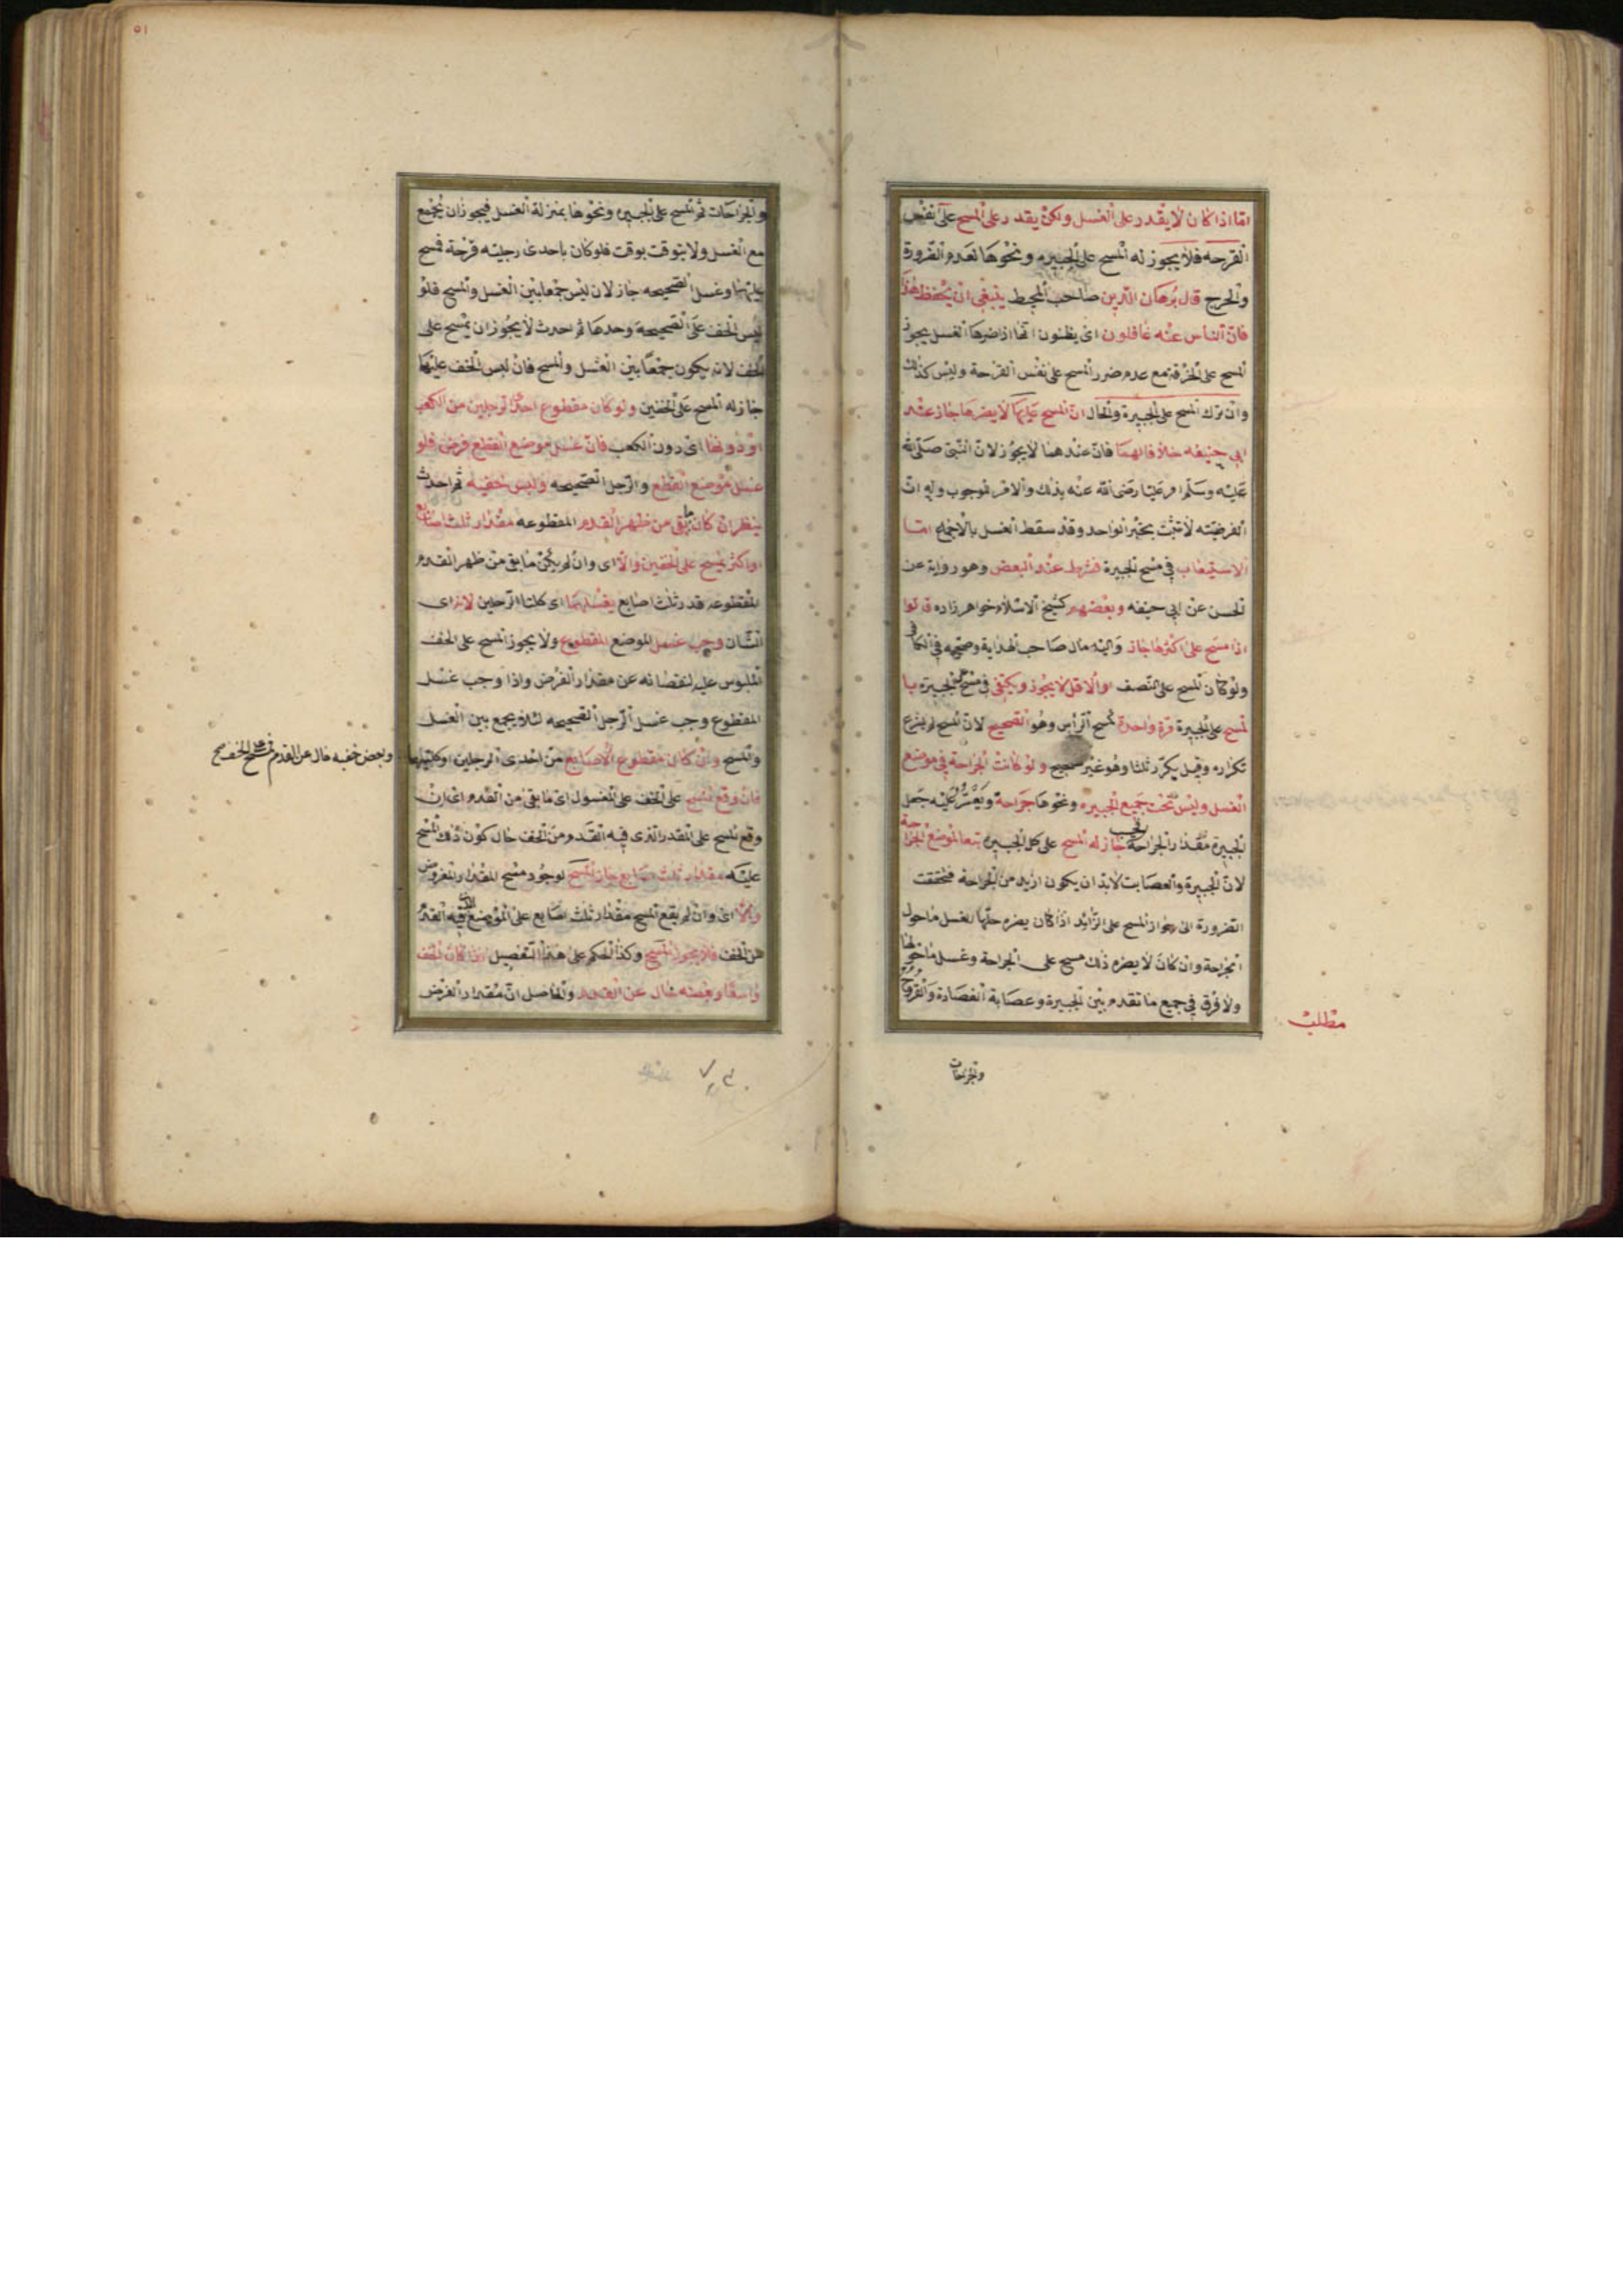 اما اذا كان لا يقدر على الغسل ولكن يقدر على المسح على نفس
القرحه فلا يجوز له المسح على الجبيره ونحوها لعدم الضرورة
والحرج قال برهان الدين صاحب المحيط ينبغى ان يحفظ هذا
فان الناس عنه غافلون اى يظنون انها اذا ضرها الغسل يجوز
المسح على الخرقة مع عدم ضرر المسح على نفس القرحة وليس كذلك
وان ترك المسح على الجبيرة والحال ان المسح عليها لا يضرها جاز عند
ابى حنيفه خلافا لهما فان عندهما لا يجوز لان النبى صلى الله
عليه وسلم امر عليا رضى الله عنه بذلك والامر للوجوب وله ان
الفرضيته لا تثبت بخبر الواحد وقد سقط الغسل بالاجماع اما
الاستيعاب فى مسح الجبيرة فشرط عند البعض وهو رواية عن
الحسن عن ابى حنيفه وبعضهم كشيخ الاسلام خواهر زاده قالوا
اذا مسح على اكثرها جاز واليه مال صاحب الهداية وصححه فى الكافى
ولو كان المسح على النصف او الاقل لا يجوز ويكتفى فى مسح الجبيرة با
لمسح على الجبيرة مرة واحدة كمسح الرأس وهو الصحيح لان المسح لم يشرع
تكراره وقيل يكرر ثلثا وهو غير صحيح ولو كانت الجراحة فى موضع
الغسل وليس تحت جميع الجبيره ونحوها جراحة ويعسر عليه جعل
الجبيرة مقدار الجراحة جاز له المسح على كل الجبيره تبعا لموضع الجراحة
لان الجبيرة والعصابت لابد ان يكون ازيد من الجراحة فتحققت
الضرورة الى جواز المسح على الزائد اذا كان يضره حلها لغسل ما حول
الجراحة وان كان لا يضره ذلك مسح على الجراحة وغسل ما حولها
ولا فرق فى جميع ما تقدم بين الجبيرة وعصابة الفصادة والقروح
مطلب
والجراحات
٥١
والجراحات ثم المسح على الجبيره ونحوها بمنزلة الغسل فيجوز ان يجمع
مع الغسل ولا يتوقت بوقت فلو كان باحدى رجليه قرحة فمسح
عليها وغسل الصحيحه جاز لان ليس جمعا بين الغسل والمسح فلو
لبس الخف على الصحيحة وحدها ثم احدث لا يجوز ان يمسح على
الخف لانه يكون جمعا بين الغسل والمسح فان لبس الخف عليهما
جاز له المسح على الخفين ولو كان مقطوع احدى الرجلين من الكعب
او دونها اى دون الكعب فان غسل موضع القطع فرض فلو
غسل موضع القطع والرجل الصحيحه ولبس خفيه ثم احدث
ينظر ان كان بقى من ظهر القدم المقطوعه مقدار ثلث اصابع
او اكثر يمسح على الخفين والا اى وان لم يكن ما بقى من ظهر القدم
المقطوعه قدر ثلث اصابع يغسلهما اى كلتا الرجلين لانه اى
الشان وجب غسل الموضع المقطوع ولا يجوز المسح على الخف
الملبوس عليه لنقصانه عن مقدار الفرض واذا وجب غسل
المقطوع وجب غسل الرجل الصحيحه لئلا يجمع بين الغسل
والمسح وان كان مقطوع الاصابع من احدى الرجلين او كلتيهما
وبعض خفيه خال عن القدم فمسح على الخف صح
فان وقع المسح على الخف على المغسول اى ما بقى من القدم اى ان
وقع المسح على المقدار الذى فيه القدم من الخف حال كون ذلك المسح
عليه مقدار ثلث اصابع جاز المسح لوجود مسح المقدار المفروض
والا اى وان لم يقع المسح مقدار ثلث اصابع على الموضع الذى فيه القدم
من الخف فلا يجوز المسح وكذا الحكم على هذا التفصيل اذا كان الخف
واسعا وبعضه خال عن القدم والحاصل ان مقدار الفرض